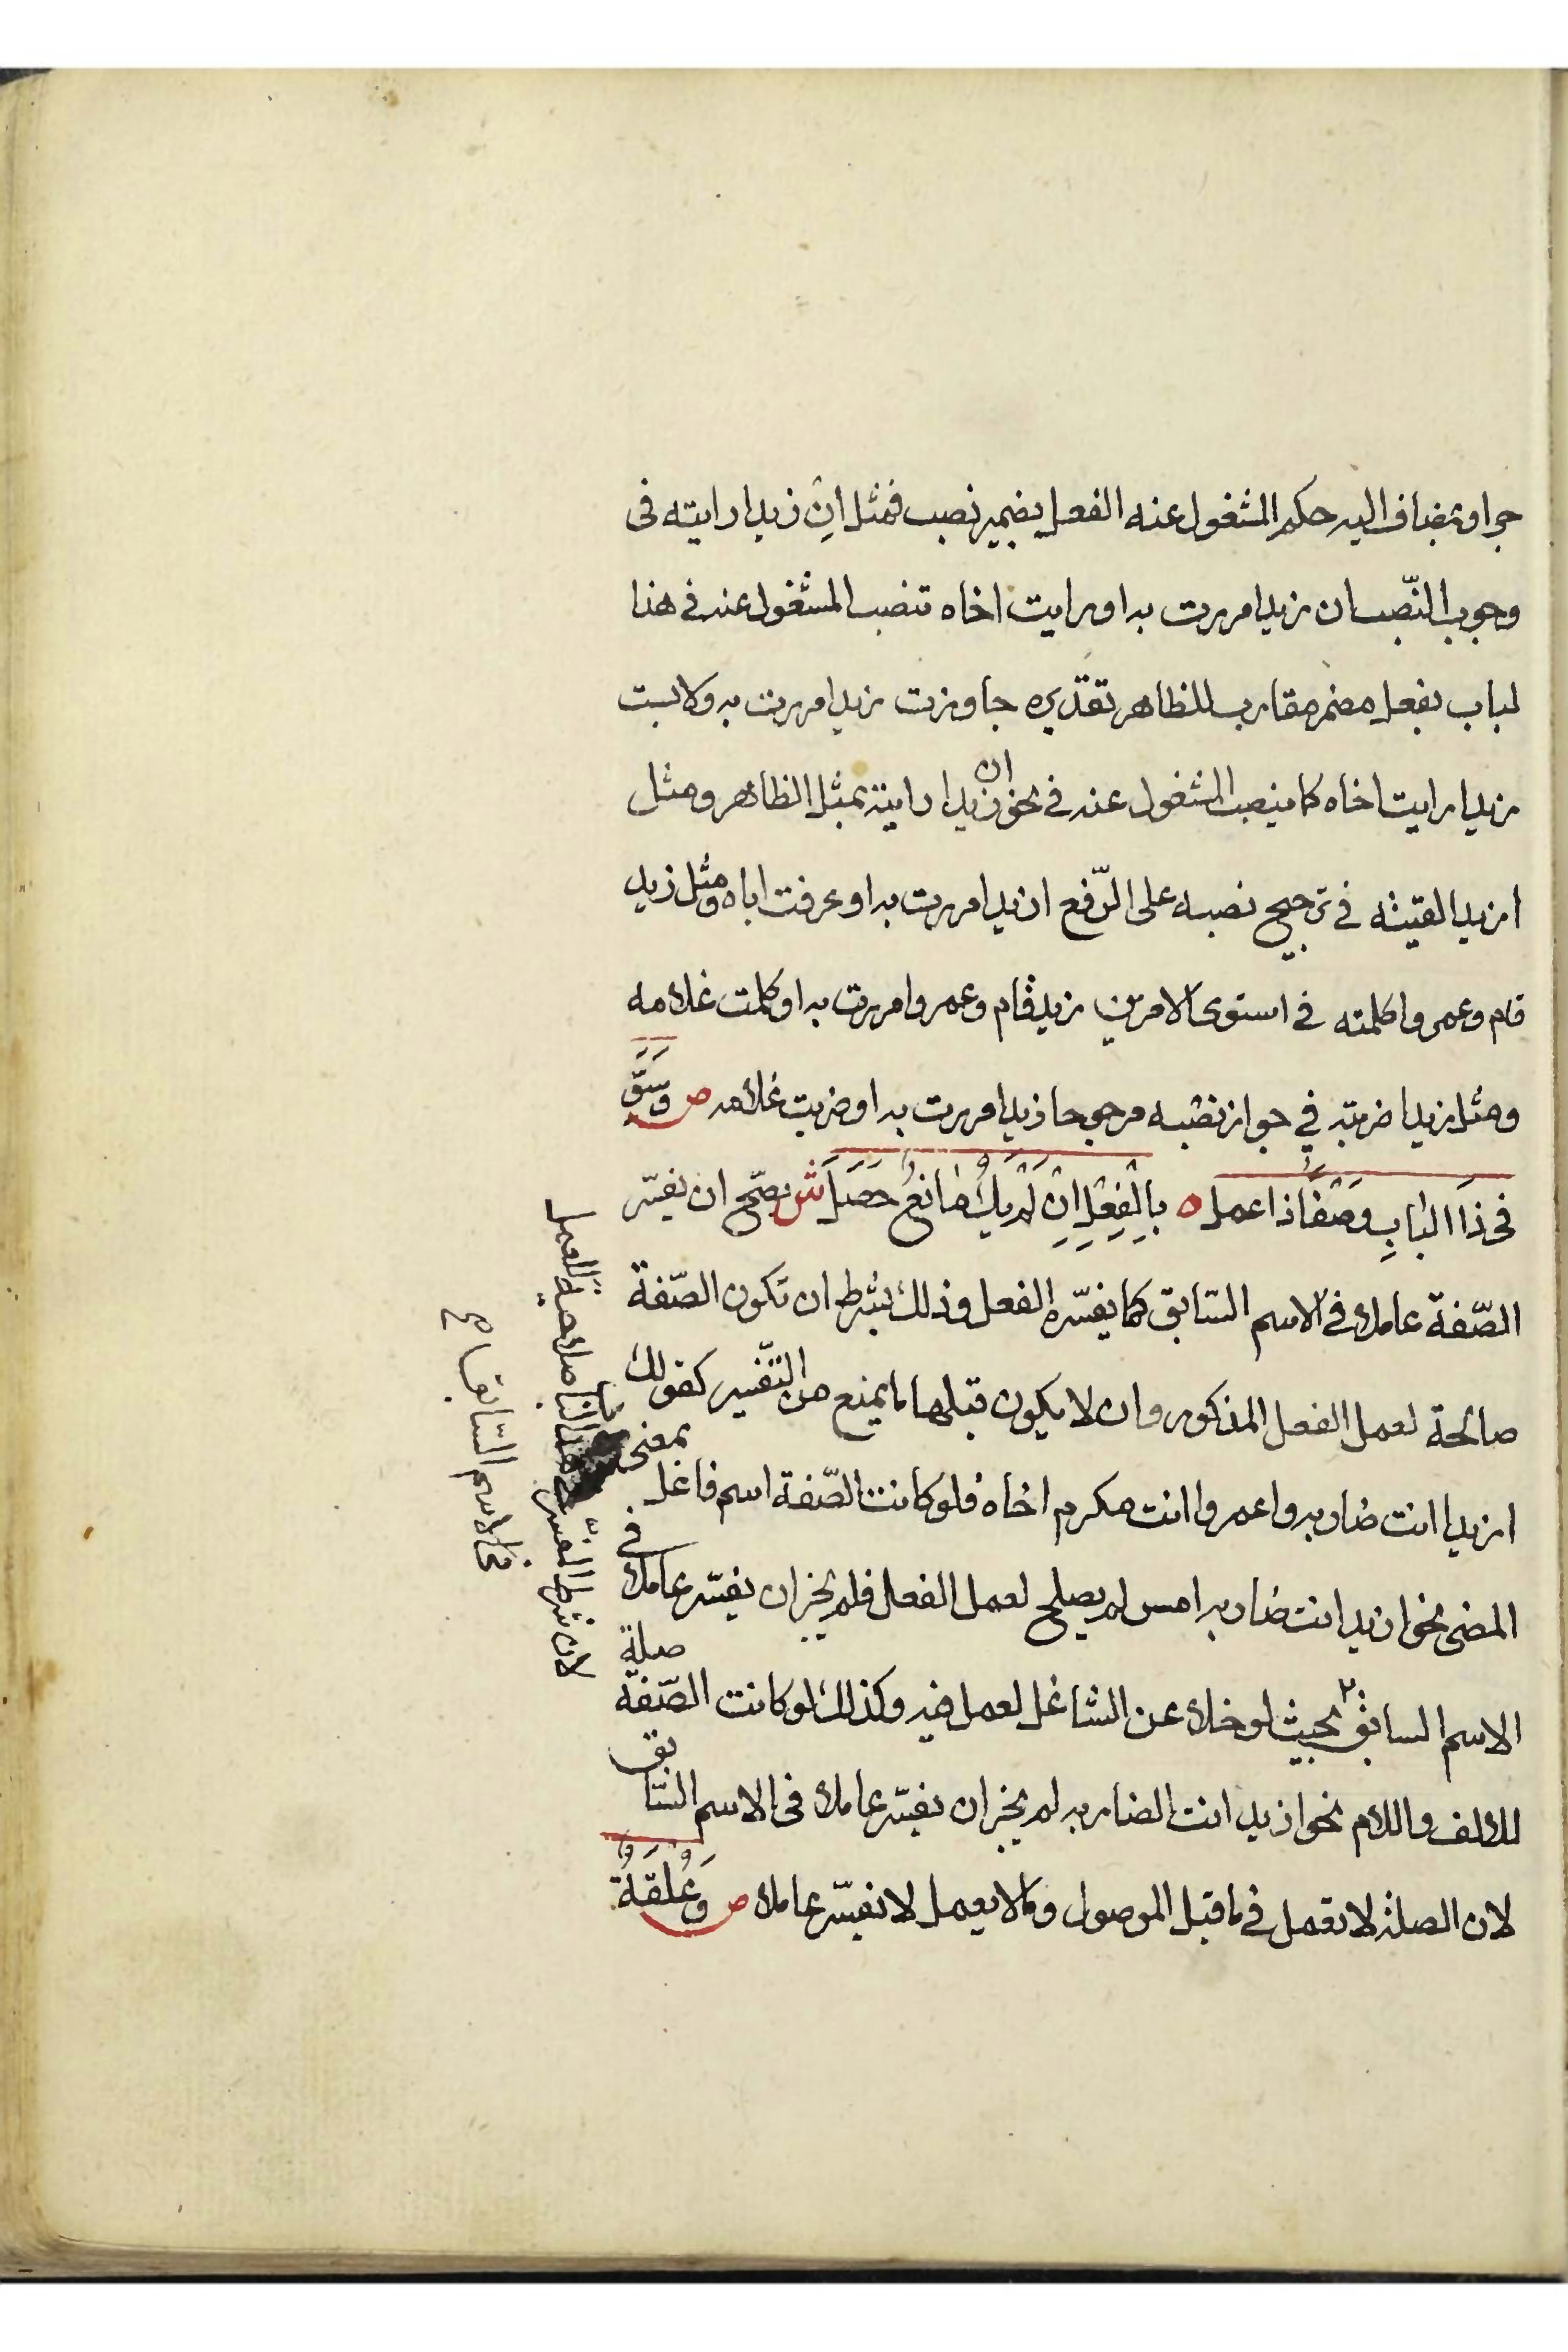 جر او بمضاف اليه حكم المشغول عنه الفعل بضمير نصب فمثل ان زيدا رايته فى
وجوب النّصب ان زيدا مررت به او رايت اخاه تنصب المشغول عنه فى هذا
لباب بفعل مضمر مقارب للظاهر تقديره جاوزت زيدا مررت به ولابست
زيدا رايت اخاه كما ينصب المشغول عنه فى نحو ان زيدا رايته بمثل الظاهر ومثل
ازيدا لقيته فى ترجيح نصبه على الرّفع ازيدا مررت به او عرفت اباه ومثل زيد
قام وعمروا كلمته فى استوى الامرين زيد قام وعمروا مررت به او كلمت غلامه
ومثل زيدا ضربته فى جواز نصبه مرجوحا زيدا مررت به او ضربت غلامه ص وَسَوِّ
فى ذَا البَابِ وَصْفًا ذا عمل ه بِالْفِعْلِ اِنْ لَمْ يَكُ مَانِعٌ حَصَلَ ش يصّح ان يفسّر
الصّفة عاملا فى الاسم السّابق كما يفسّره الفعل وذلك بشرط ان تكون الصّفة
صالحة لعمل الفعل المذكور وان لا يكون قبلها ما يمنع من التّفسير كقولك
ازيدا انت ضاربه واعمروا انت مكرم اخاه فلو كانت الصّفة اسم فاعل بمعنى
المضى نحو ازيد انت ضاربه امس لم يصلح لعمل الفعل فلم يجز ان يفسّر عاملا فى
الاسم السابق بحيث لو خلا عن الشاغل لعمل فيه وكذلك لو كانت الصّفة صلة
للالف واللام نحو ازيد انت الضاربه لم يجز ان يفسّر عاملا فى الاسم السّابق
لان الصلة لا تعمل فى ما قبل الموصول وما لا يعمل لا يفسّر عاملا ص وَعُلْقَةٌ
لان شرط المفسّر صلاحيته للعمل
فى الاسم السّابق